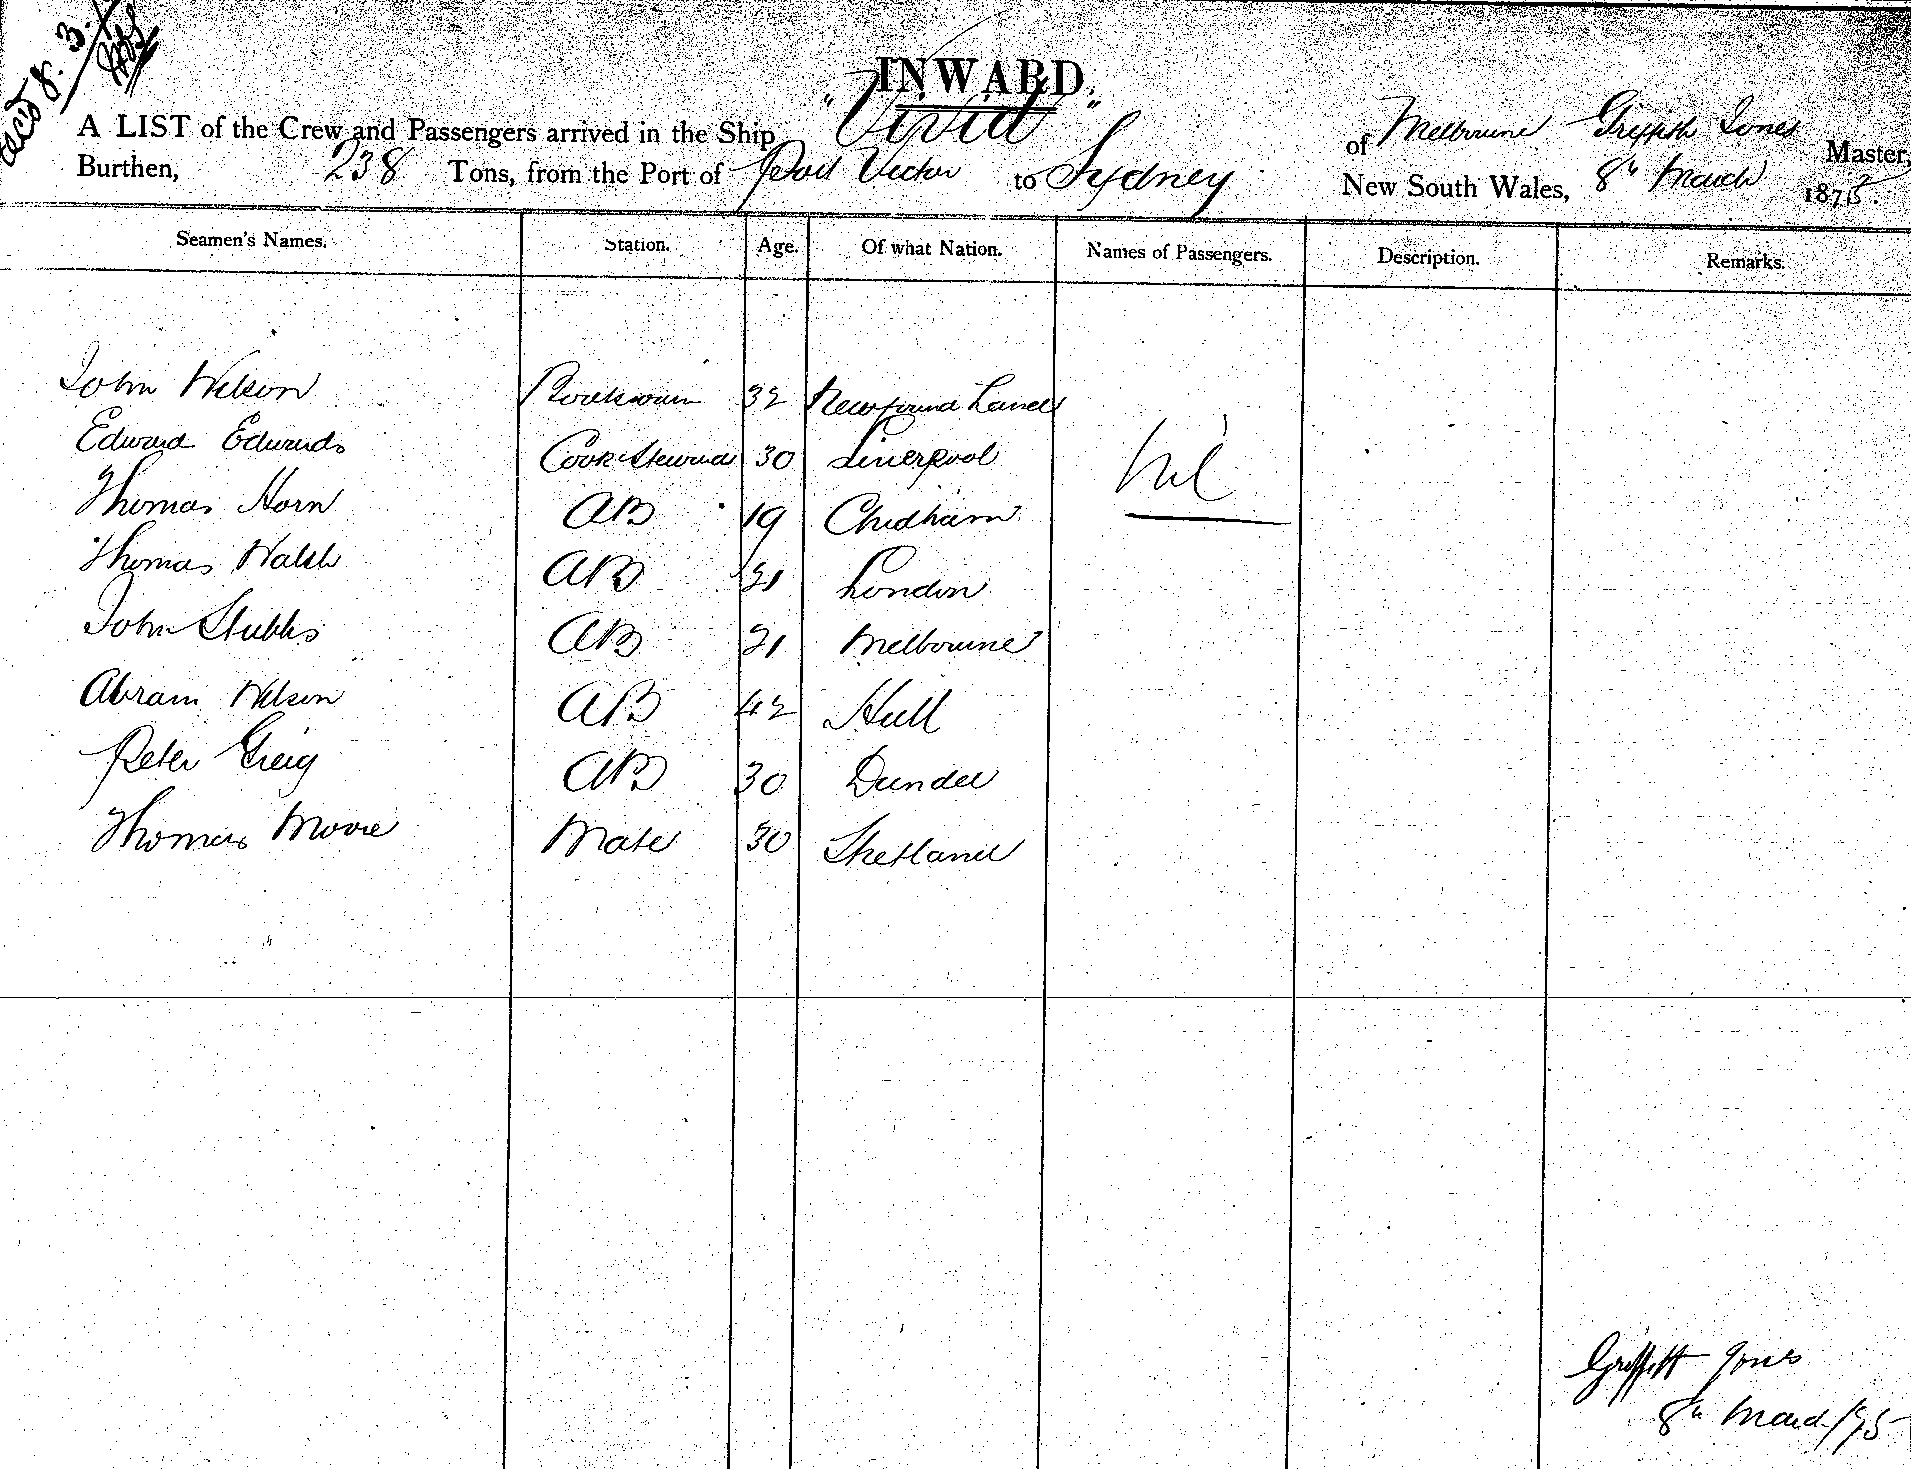 Rec'd 8. 3.
INWARD.
A LIST of the Crew and Passengers arrived in the Ship "Vivid" of Melbourne Griffith Jones Master,
Burthen, 238 Tons, from the Port of Port Victor to Sydney New South Wales, 8th March 1875.
Seamen's Names. Station. Age. Of what Nation. Names of Passengers. Description. Remarks.
John Wilson Boatswain 32 Newfound Land
Edward Edwards Cook & Steward 30 Liverpool
Nil
Thomas Horn AB 19 Chidham
Thomas Walsh AB 21 London
John Stubbs AB 21 Melbourne
Abram Wilson AB 42 Hull
Peter Greig AB 30 Dundee
Thomas Moore Mate 30 Shetland
Griffith Jones
8th March /75